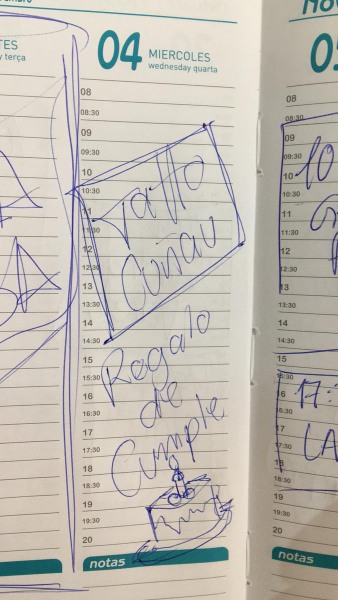 TES
terça
04 MIERCOLES
wednesday quarta
08
08:30
09
09:30
10
10:30
11
11:30
12
12:30
13
13:30
14
14:30
15
15:30
16
16:30
17
17:30
18
18:30
19
19:30
20
Tatto
Cuñau
Regalo
de
Cumple
notas
nov
08
08:30
09
09:30
10
10:30
11
11:30
12
12:30
13
15
15:30
16
16:30
17
17:30
18
18:30
19
19:30
20
10
17:
LA
notas